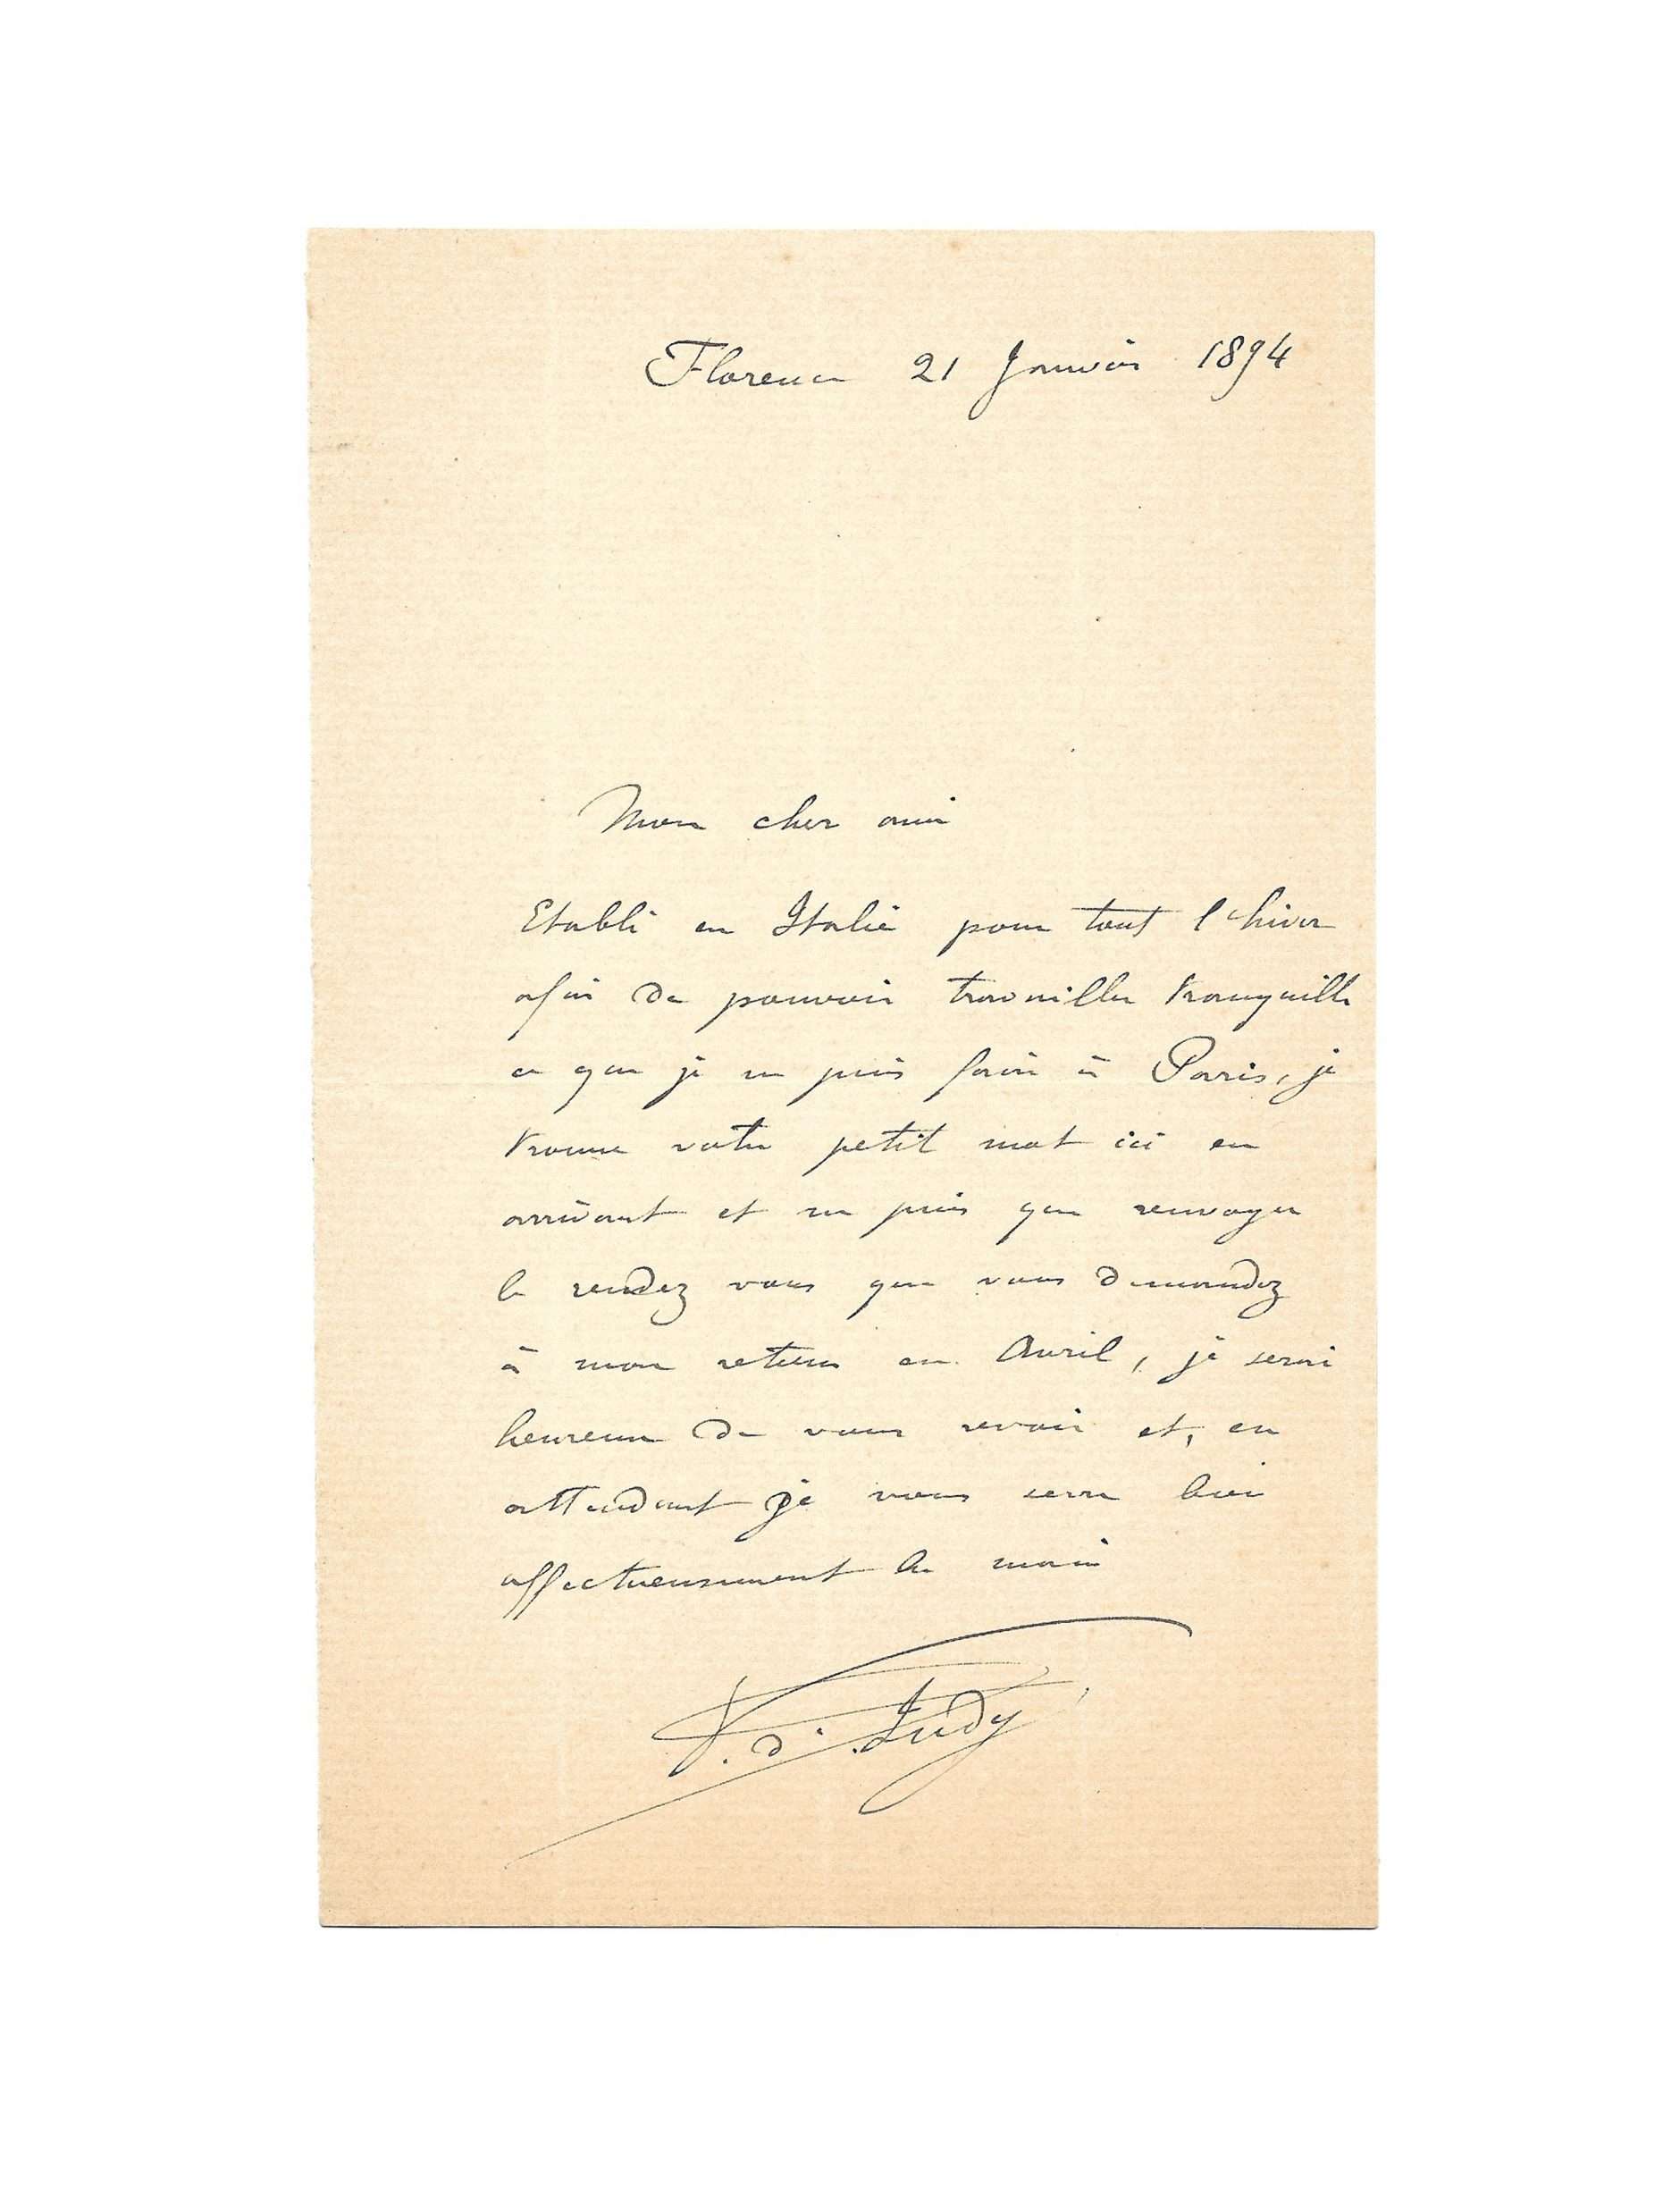 Florence 21 Janvier 1894
Mon cher ami
Etabli en Italie pour tout l'hiver
afin de pouvoir travailler tranquille
ce que je ne puis faire à Paris, je
trouve votre petit mot ici en
arrivant et ne puis que renvoyer
le rendez vous que vous demandez
à mon retour en Avril, je serai
heureux de vous revoir et, en
attendant je vous serre bien
affectueusement la main
V. d'Indy